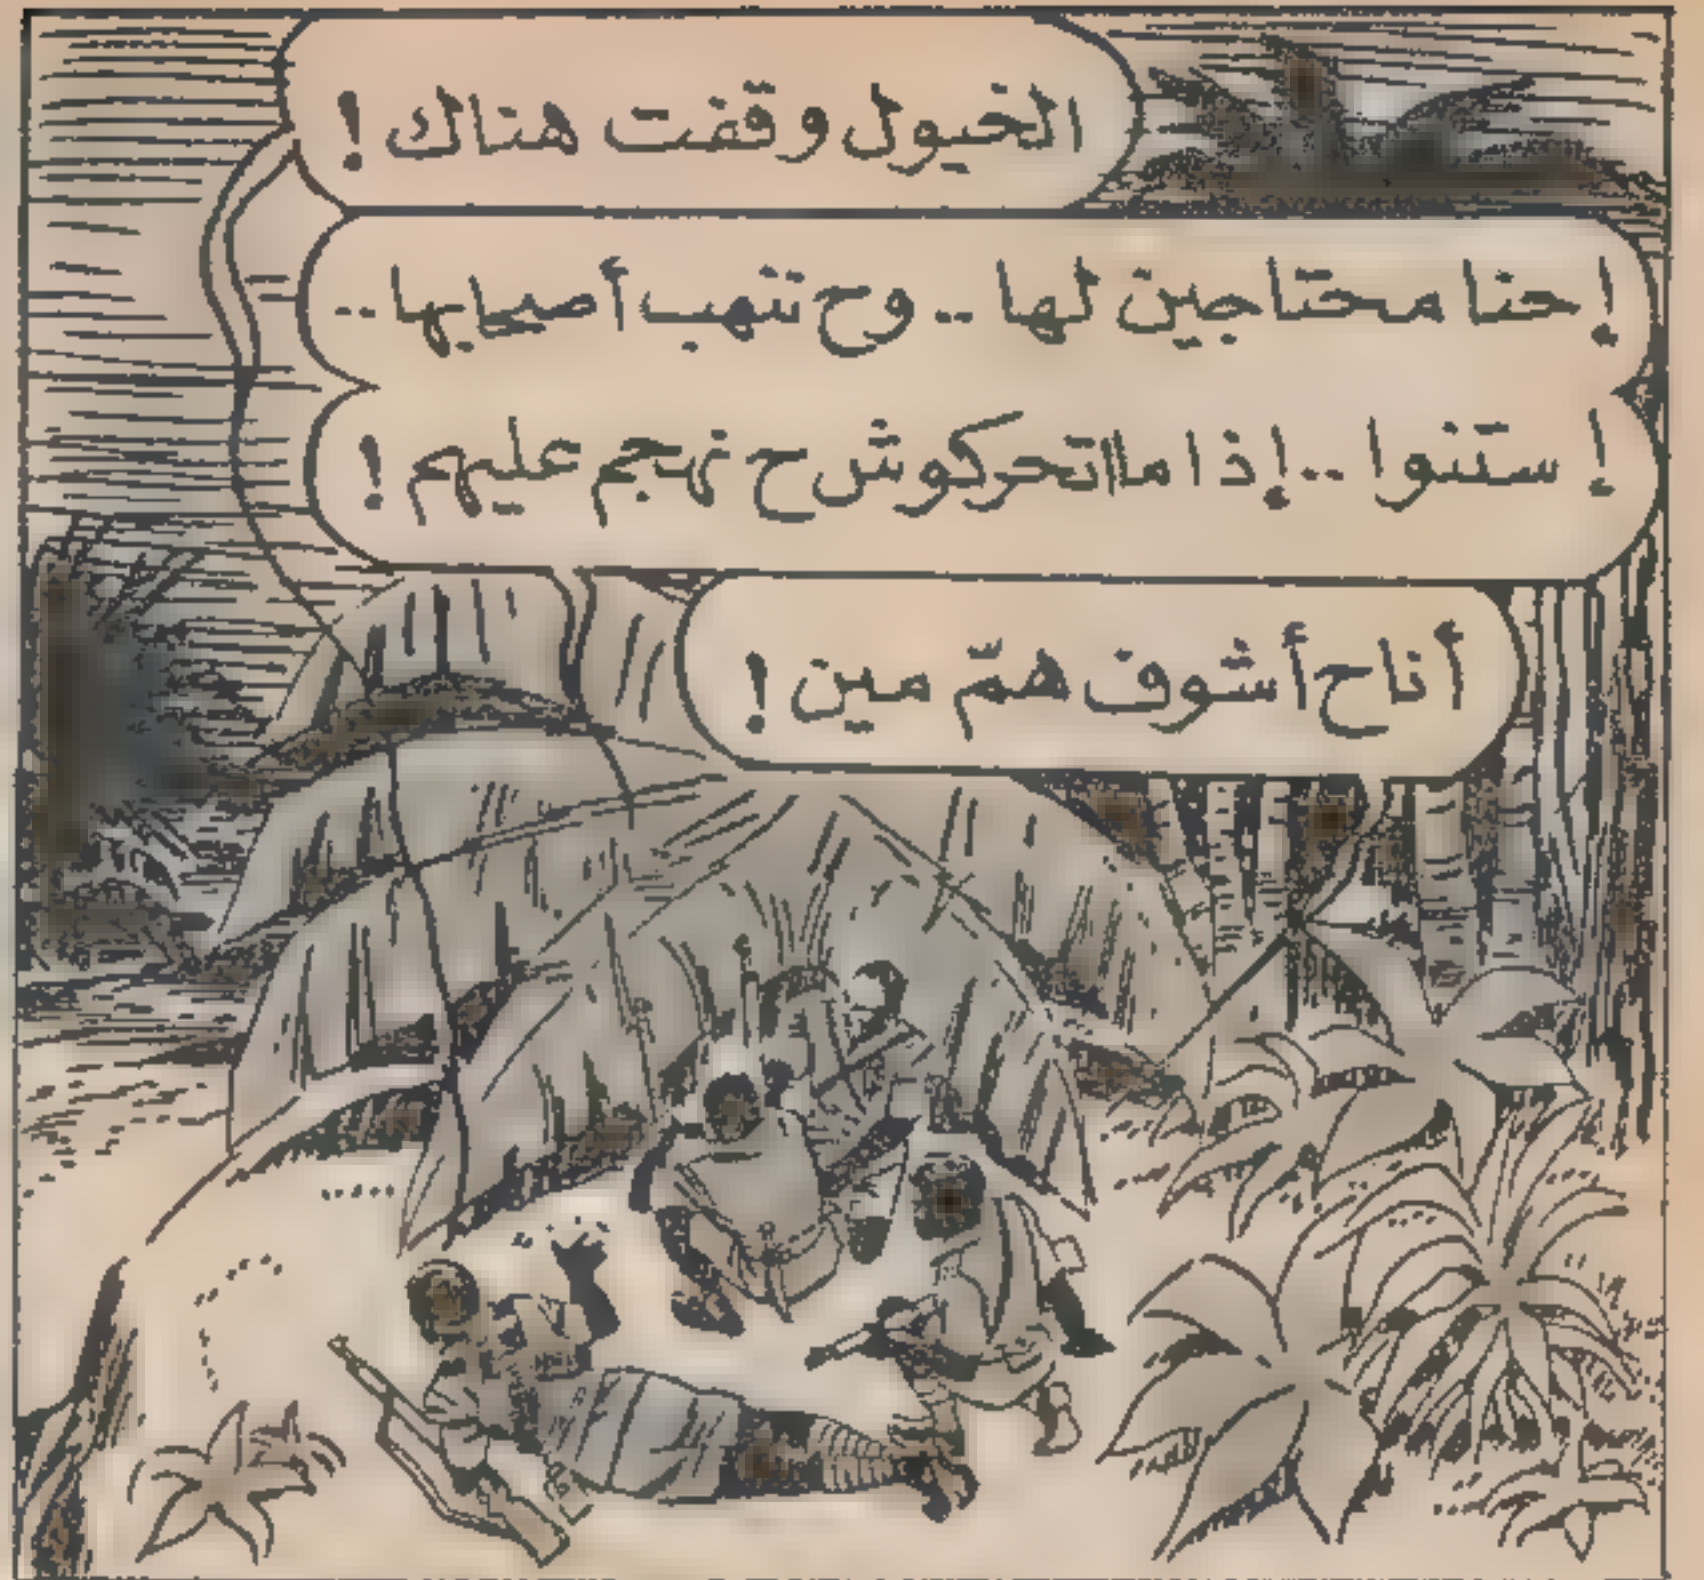 الخيول وقفت هناك !
إحنا محتاجين لها .. وح ننهب أصحابها ..
إستنوا .. إذا مااتحركوش ح نهجم عليهم !
أنا ح أشوف همّ مين !